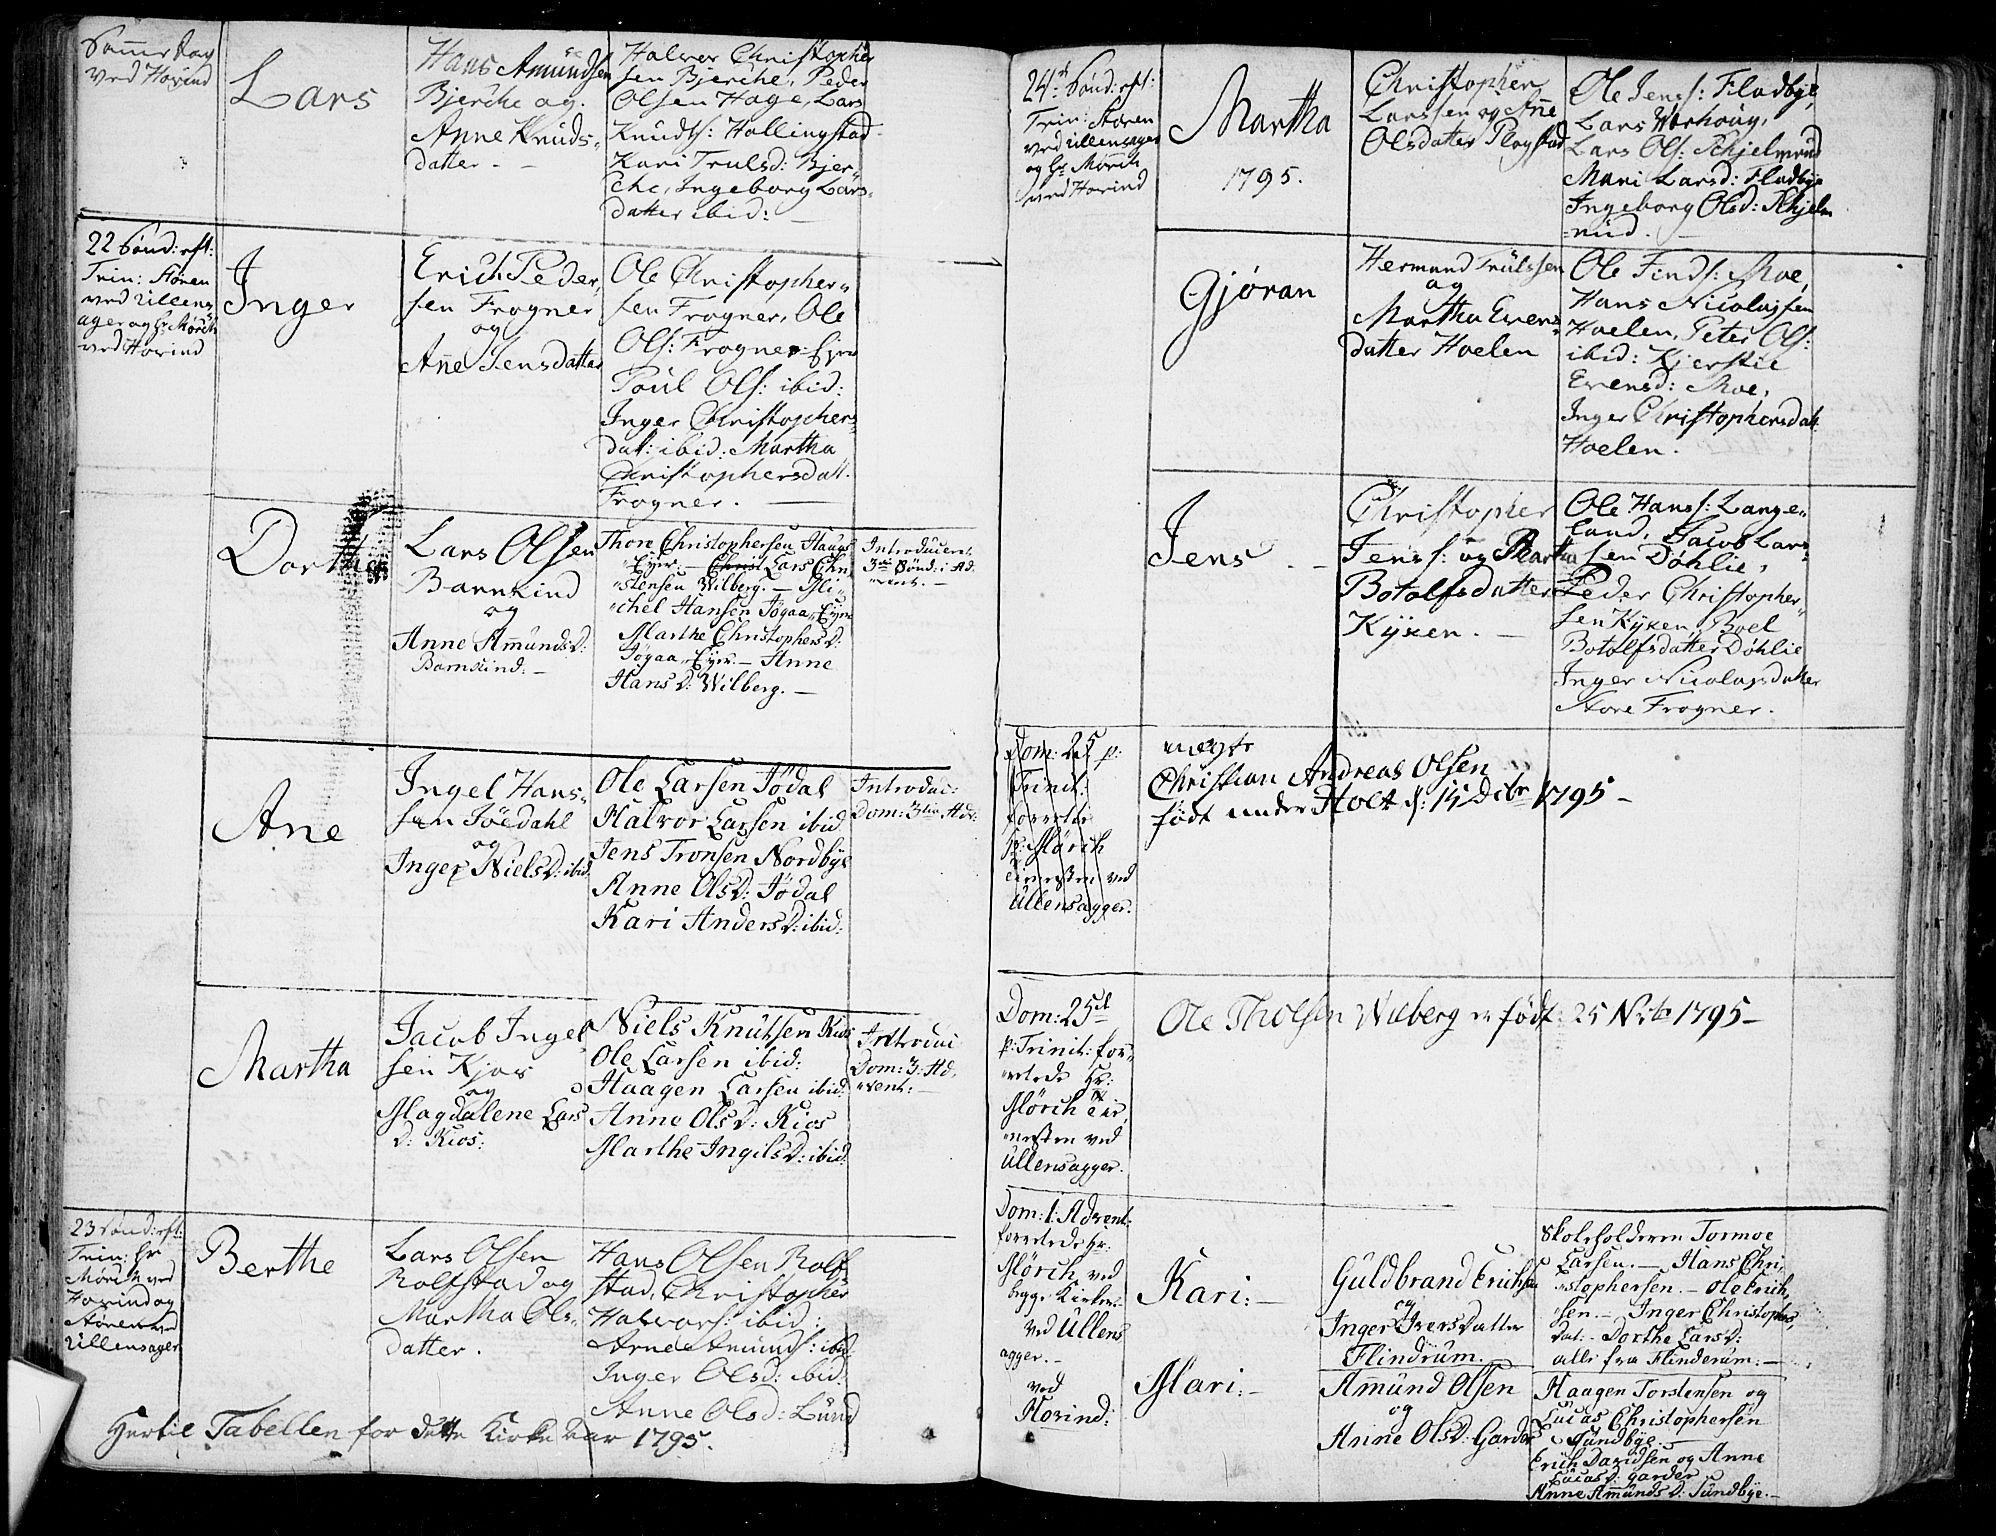 Samme Dag
ved Hovind
Lars
Hans Amundsen
Bjerche og
Anne Knuds-
datter. -
Halvor Christopher
sen Bjerche, Peder
Olsen Hage, Lars
Knudts: Hallingstad
Kari Trulsd: Bjer-
che, Ingeborg Lars-
datter ibid:
22 Sönd: eft:
Trin: Støren
ved Ullens-
ager og Hr Mørch
ved Hovind
Inger
Erich Peder-
sen Frogner
og
Anne Jensdatter
Ole Christopher-
sen Frogner, Ole
Ols: Frogner Ejer
Poul Ols: ibid:
Inger Christophers-
dat: ibid: Martha
Christophersdatt.
Frogner.
Dorthe
Lars Olsen
Barnkind
og
Anne AmundsD:
Barnkind: -
Thore Christophersen Haug
Eyer. - Lars Chri-
stensen Wilberg. - Mi-
chel Hansen Jøgaa Eyer
Marthe ChristophersD:
Jøgaa Eyer. - Anne
HansD: Wilberg. -
Introduceret
3die Sönd: i Ad-
vent. -
Ane
Ingel Hans-
sen Jödahl
og
Inger NielsD: ibid.
Ole Larsen Jödal
Halvor Larsen ibid:
Jens Tronsen Nordbye
Anne OlsD: Jödal
Kari AndersD: ibid:
Introduc:
Dom: 3tia Adv:
Martha
Jacob Ingel
sen Kjos
og
Magdalene Lars
D: Kios:
Niels Knutsen Kios
Ole Larsen ibid:
Haagen Larsen ibid:
Anne OlsD: Kios
Marthe IngilsD: ibid:
Introduc
Dom: 3. Ad-
vent: -
23 Sönd: eft:
Trin: Hr
Mørch ved
Hovind og
Støren ved
Ullensager
Berthe
Lars Olsen
Rolfstad og
Martha Ols-
datter.
Hans Olsen Rolf
stad, Christopher
Halvors: ibid:
Arne Amunds: ibid
Inger Olsd: ibid:
Anne Olsd: Lund
Hertil Tabellen for dette Kirke Aar 1795.
24de Sönd: eft:
Trin: Støren
ved Ullensager
og Hr Mørch
ved Hovind
Martha
1795.
Christopher
Larssen og Anne
Olsdatter Plogstad
Ole Jens: Fladbye,
Lars Horhoug,
Lars Ols: Schjelmerud
Mari Larsd: Fladbye
Ingeborg Olsd: Schjelm
-rud.
Gjøran
Hermand Trulssen
og
Martha Evens-
datter Hoelen
Ole Finds: Moe,
Hans Nicolajsen
Hoelen, Peter Ols:
ibid: Kjerstie
Evensd: Moe,
Inger Christophersdatt:
Hoelen.
Jens. -
Christopher
Jens: og Martha
Botolfsdatter
Kyxen. -
Ole Hans: Lange-
land, Jacob Lars-
sen Döhlie,
Peder Christopher-
sen Kyxen, Boel
Botolfsdatter Döhlie
Inger Nicolajsdatter
Store Frogner.
Dom: 25 p:
Trinit:
forrettede
Hr: Mörch
tienesten ved
Ullensagger.
uegte
Christian Andreas Olsen
født under Holt d: 15 Dcbr 1795 -
Dom: 25de
p: Trinit: for-
rettede Hr:
Mörch tie-
nesten ved
Ullensagger.
Ole Tholsen Wilberg er født: 25 Nvbr 1795 -
Dom: 1. Advent:
forrettede Hr:
Mörch ved
begge Kirker -
ved Ullens
agger. -
ved
Hovind:
Kari: -
Guldbrand Erichsen
og
Inger IversDatter
Flindrum. -
Skoleholderen Tormoe
Larsen. - Hans Chri-
stophersen. - Ole Erich-
sen. - Inger Christophers
Dat: - Dorthe LarsD:
alle fra Flinderum: -
Mari: -
Amund Olsen
og
Anne OlsD: Garder
Haagen Torstensen og
Lucas Christophersen
Sundbye. -
Erich Davidsen og Anne
LucasD: Garder
Anne AmundsD: Sundbye. -